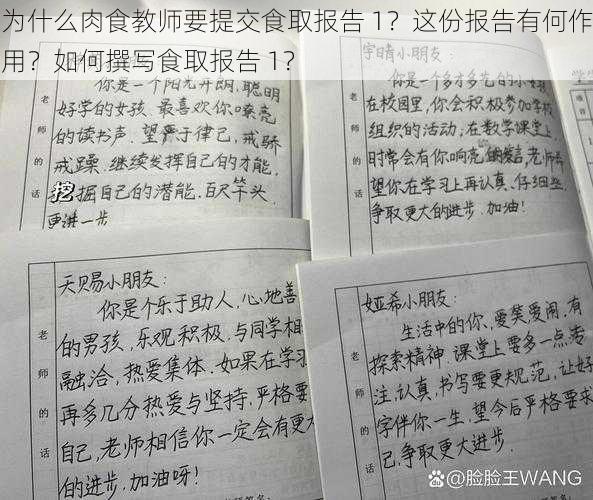 为什么肉食教师要提交食取报告 1？这份报告有何作
用？如何撰写食取报告 1？
你是一个阳光开朗,聪明
好学的女孩.最喜欢你嘹亮
的读书声.望严于律己,戒骄
戒躁.继续发挥自己的才能,
挖掘自己的潜能.百尺竿头,
更进一步
老师的话
宇晴小朋友:
你是一个多才多艺的小女孩
在校园里,你会积极参加学校
组织的活动,在数学课堂上,
时常会有你响亮的发言.老师希
望你在学习上再认真、仔细些,
争取更大的进步.加油!
老师的话
天赐小朋友:
你是个乐于助人,心地善
的男孩,乐观积极.与同学相
融洽,热爱集体.如果在学习
再多几分热爱与坚持.严格要
自己,老师相信你一定会有更大
的进步.加油呀!
老师的话
娅希小朋友:
生活中的你,爱笑,爱闹,有
探索精神.课堂上要多一点专
注,认真.书写要更规范,让好
字伴你一生,望今后严格要求
己,争取更大进步.
老师的话
@脸脸王WANG